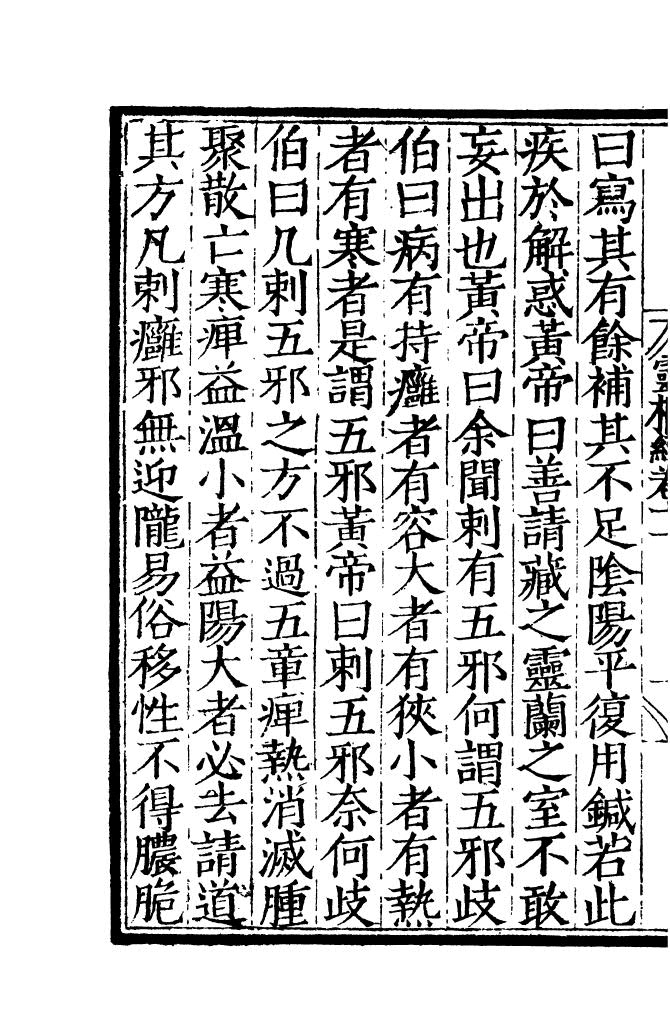 曰寫其有餘補其不足陰陽平復用鍼若此
疾於解惑黃帝曰善請藏之靈蘭之室不敢
妄出也黃帝曰余聞刺有五邪何謂五邪歧
伯曰病有持癰者有容大者有狹小者有熱
者有寒者是謂五邪黃帝曰刺五邪奈何歧
伯曰凡刺五邪之方不過五章痺熱消滅腫
聚散亡寒痺益溫小者益陽大者必去請道
其方凡刺癰邪無迎隴易俗移性不得膿脆